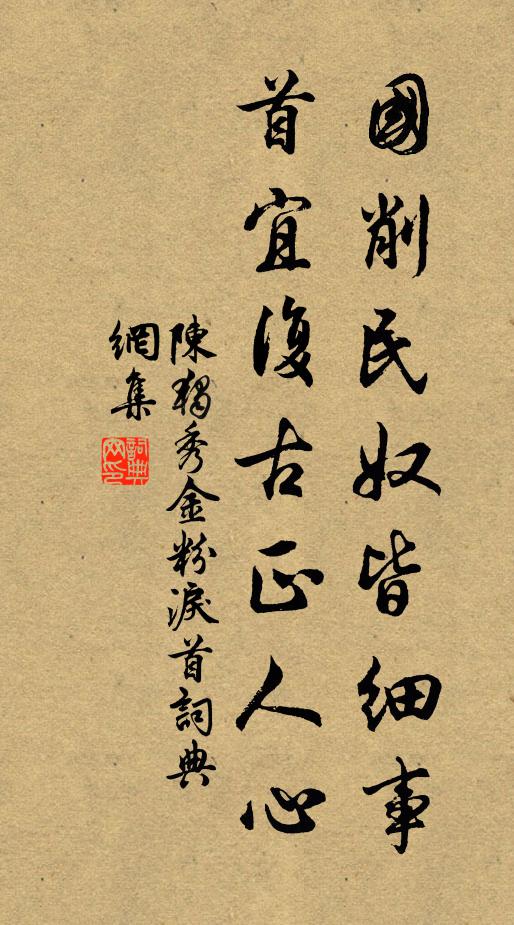 國削民奴皆細事
首宜復古正人心
陳獨秀金粉淚首詞典
網集
詞典網印